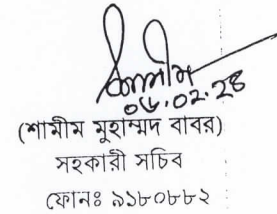 শামীম
০৬.০২.২৪
(শামীম মুহাম্মদ বাবর)
সহকারী সচিব
ফোনঃ ৯১৮০৮৮২